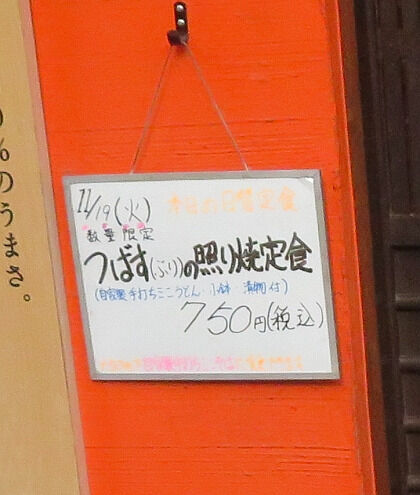 11/19(火) 本日の日替定食
数量限定
つばす(ぶり)の照り焼定食
(自家製 手打ちミニうどん・小鉢・漬物付)
750円(税込)
%のうまさ。